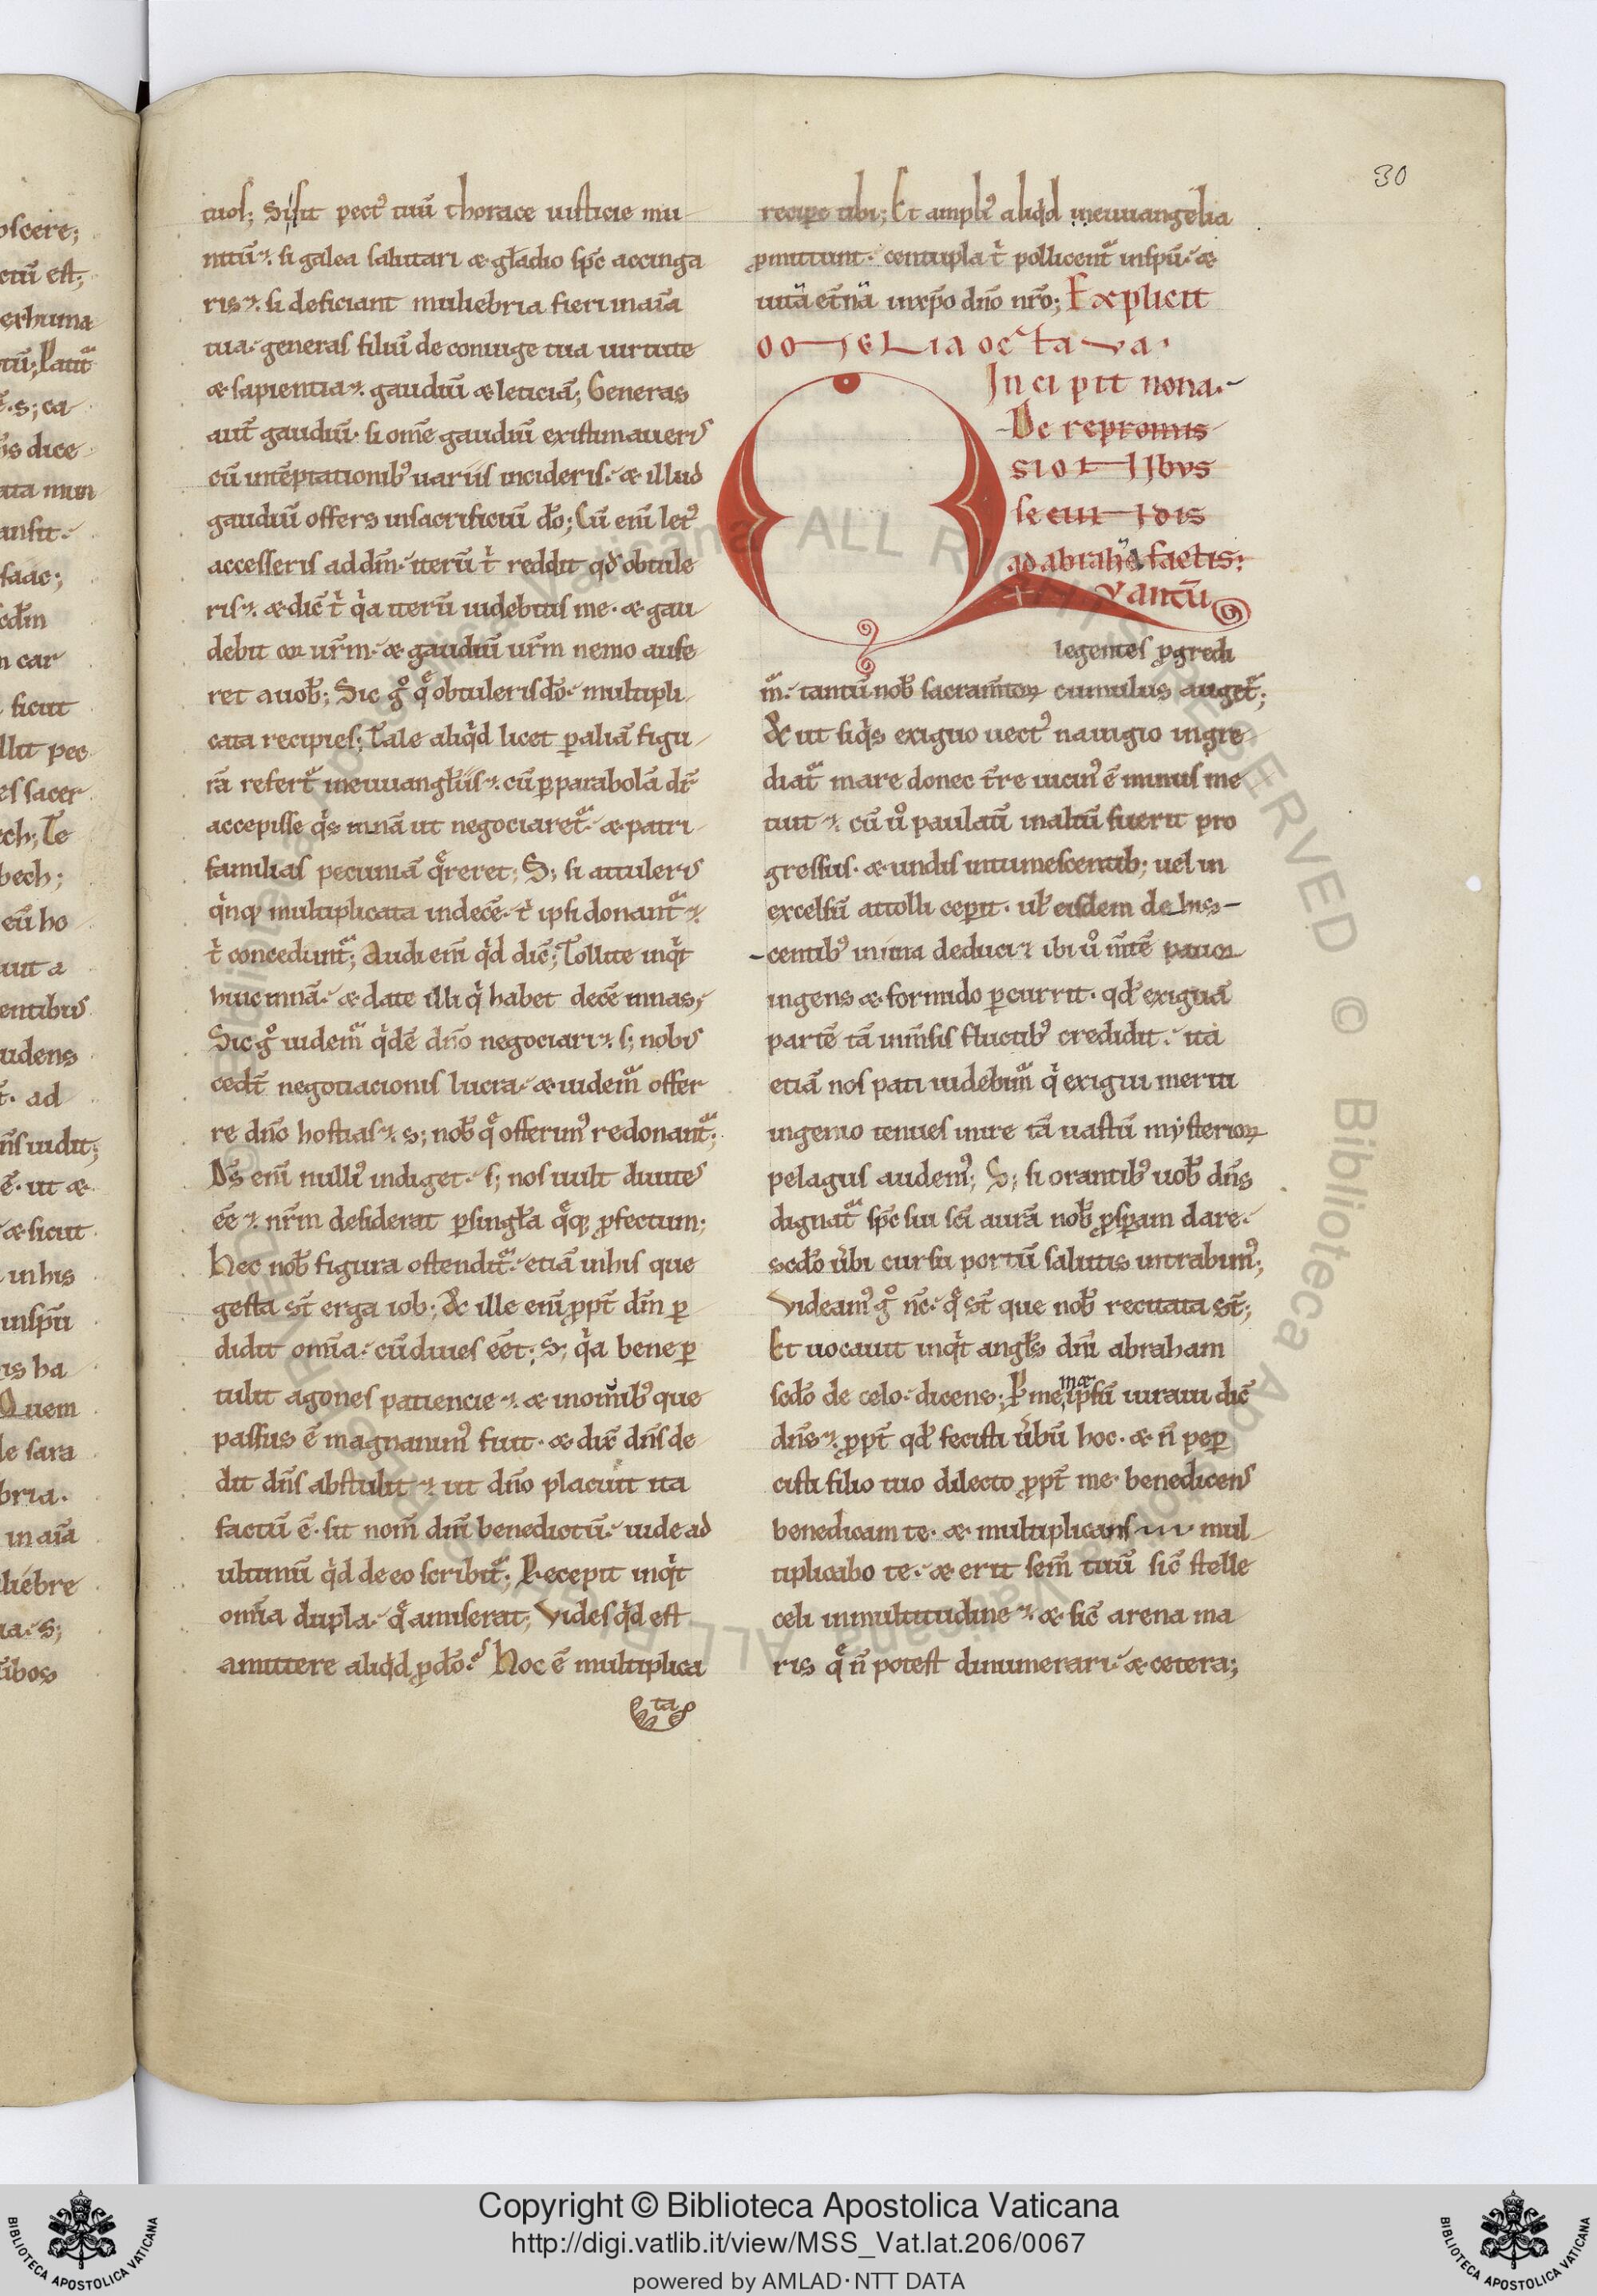 30
tuos; Si sit pect᾽ tuū thorace iusticie mu
nitū. si galea salutari & gladio sp̄c accinga
ris. si deficiant muliebria fieri in aīa
tua. generas filiū de coniuge tua uirtute
& sapientia. gaudiū & leticiā; Generas
aut̄ gaudiū. si om̄e gaudiū existimaueris
cū in tēptationib᾽ uariis incideris. & illud
gaudiū offers in sacrificiū dō; Cū eni᷒ let᾽
accesseris ad dm̄. iterū t̍ reddit qd̄ obtule
ris. & dic̄ t̍ qa iterū uidebitis me. & gau
debit cor ur̄m. & gaudiū ur̄m nemo aufe
ret a uob̄; Sic gͦ qͤ obtuleris dō. multipli
cata recipies; Tale aliqͥd licet ꝑ aliā figu
rā refert᷑ in euuangl̄iis. cū ꝑ parabolā dr̄
accepisse qͥs mnā ut negociaret᷑. & patri
familias pecuniā qͤreret; S; si attuleris
qͥnq; multiplicata in decē. t̍ ipsi donant᷑.
t̍ concedunt᷑; Audi eni᷒ qͥd dic̄; Tollite inqͥt
huic mnā. & date illi qͥ habet decē mnas;
Sic gͦ uidem᷑ qͥdē dn̄o negociari. s; nobis
cedt̄ negotiacionis lucra. & uidem᷑ offer
re dn̄o hostias. s; nob̄ qͤ offerim᾽ redonant᷑;
Ds̄ eni᷒ nulli᾽ indiget. s; nos uult diuites
eē. nr̄m desiderat ꝑ singl̄a qͤq; ꝓfectum;
Hec nob̄ figura ostendit᷑. etiā in his que
gesta st̄ erga iob; & ille eni᷒ ꝓpt̄ dm̄ ꝑ
didit omīa. cū diues eēt; S; qa bene ꝑ
tulit agones patiencie. & in omīb᾽ que
passus ē magnanim᾽ fuit. & dix̄ dn̄s de
dit dn̄s abstulit. ut dn̄o placuit ita
factū ē. sit nom̄ dn̄i benedictū. uide ad
ultimū qͥd de eo scribit᷑; Recepit inqͥt
omīa dupla. qͤ amiserat; Vides qͥd est
amittere aliqͥd ꝓ dō. Hoc ē multiplica
ta
recipe tibi; Et ampli᾽ aliqͥd in euuangelia
ꝓmittunt. centupla t̍ pollicent᷑ insup̄. &
uitā et̄nā in xp̄o dn̄o nr̄o; Explicit
omelia octava.
Incipit nona.
De repromis
sionibus
secundis
ad abrahā factis:
Quantū
legentes ꝓgredi
m᷑. tantū nob̄ sacramtoꝝ cumulus auget᷑;
& ut siqͥs exiguo uect᾽ nauigio ingre
diat᷑ mare donec t̄re uicin᾽ ē minus me
tuit. cū uͦ paulatī in altū fuerit pro
gressus. & undis intumescentib; uel in
excelsū attolli ceperit. ul̄ eisdem dehis
centib᾽ in ima deduci. ibi uͦ mt̄ē pauor
ingens & formido ꝑcurrit. qd̄ exiguā
partē tā inm̄sis fluctib᾽ credidit. ita
etiā nos pati uidebim᷑ qͥ exigui meriti
ingenio tenues inire tā uastū mysterioꝝ
pelagus audem᾽; S; si orantib᾽ uob̄ dn̄s
dignat᷑ sp̄c sui sc̄i aurā nob̄ ꝓsꝑam dare.
scdō ūbi cursu portū salutis intrabim᾽;
Videam᾽ gͦ nc̄. qͤ st̄ que nob̄ recitata st̄;
Et uocauit inqͥt angl̄s dn̄i abraham
scdō de celo. dicens; Ꝑ me met ipsū iuraui dic̄
dn̄s. ꝓpt̄ qd̄ fecisti ūbū hoc. & n̄ peꝑ
cisti filio tuo dilecto ꝓpt̄ me. benedicens
benedicam te. & multiplicans mul
tiplicabo te. & erit sem̄ tuū sic̄ stelle
celi in multitudine. & sic̄ arena ma
ris qͤ n̄ potest dinumerari. & cetera;
oscere;
ctū est;
s dice
ansit.
saac;
n car
sicut
llit pec
es sacer
ech; Te
bech;
eū ho
entibus
uidens
. ad
n̄s uidit;
ē. ut &
& sicut
in his
insp̄u
is ha
Quem
de sara
bria.
in aīa
liebre
ibos
Copyright © Biblioteca Apostolica Vaticana
http://digi.vatlib.it/view/MSS_Vat.lat.206/0067
powered by AMLAD·NTT DATA
BIBLIOTECA APOSTOLICA VATICANA
BIBLIOTECA APOSTOLICA VATICANA